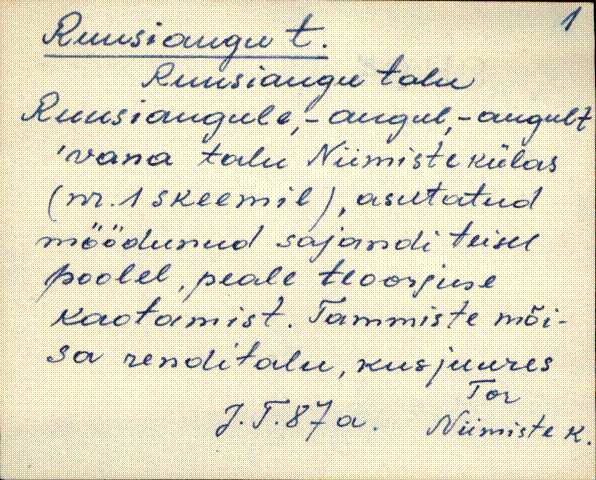 1
Ruusiangu t.
Ruusiangu talu
Ruusiangule, -angul, -angult
'vana talu Niimiste külas
(nr. 1 skeemil), asutatud
möödunud sajandi teisel
poolel, peale teoorjuse
kaotamist. Tammiste mõi-
sa renditalu, kusjuures
Tor
J.T. 87 a. Niimiste k.